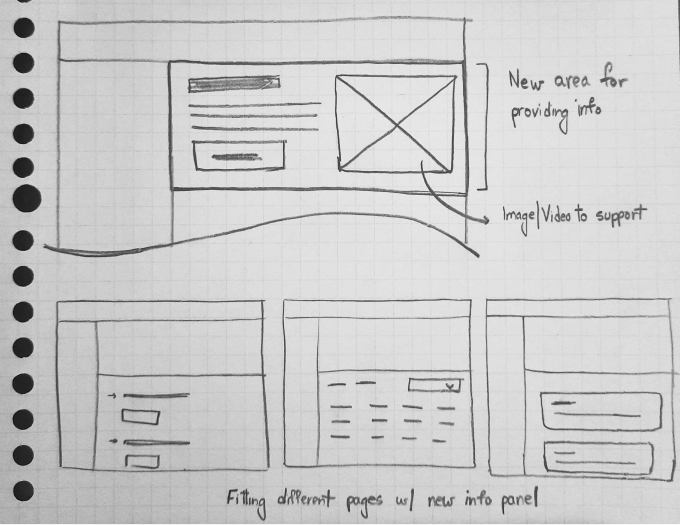 New area for
providing info
Image/Video to support
Fitting different pages w/ new info panel